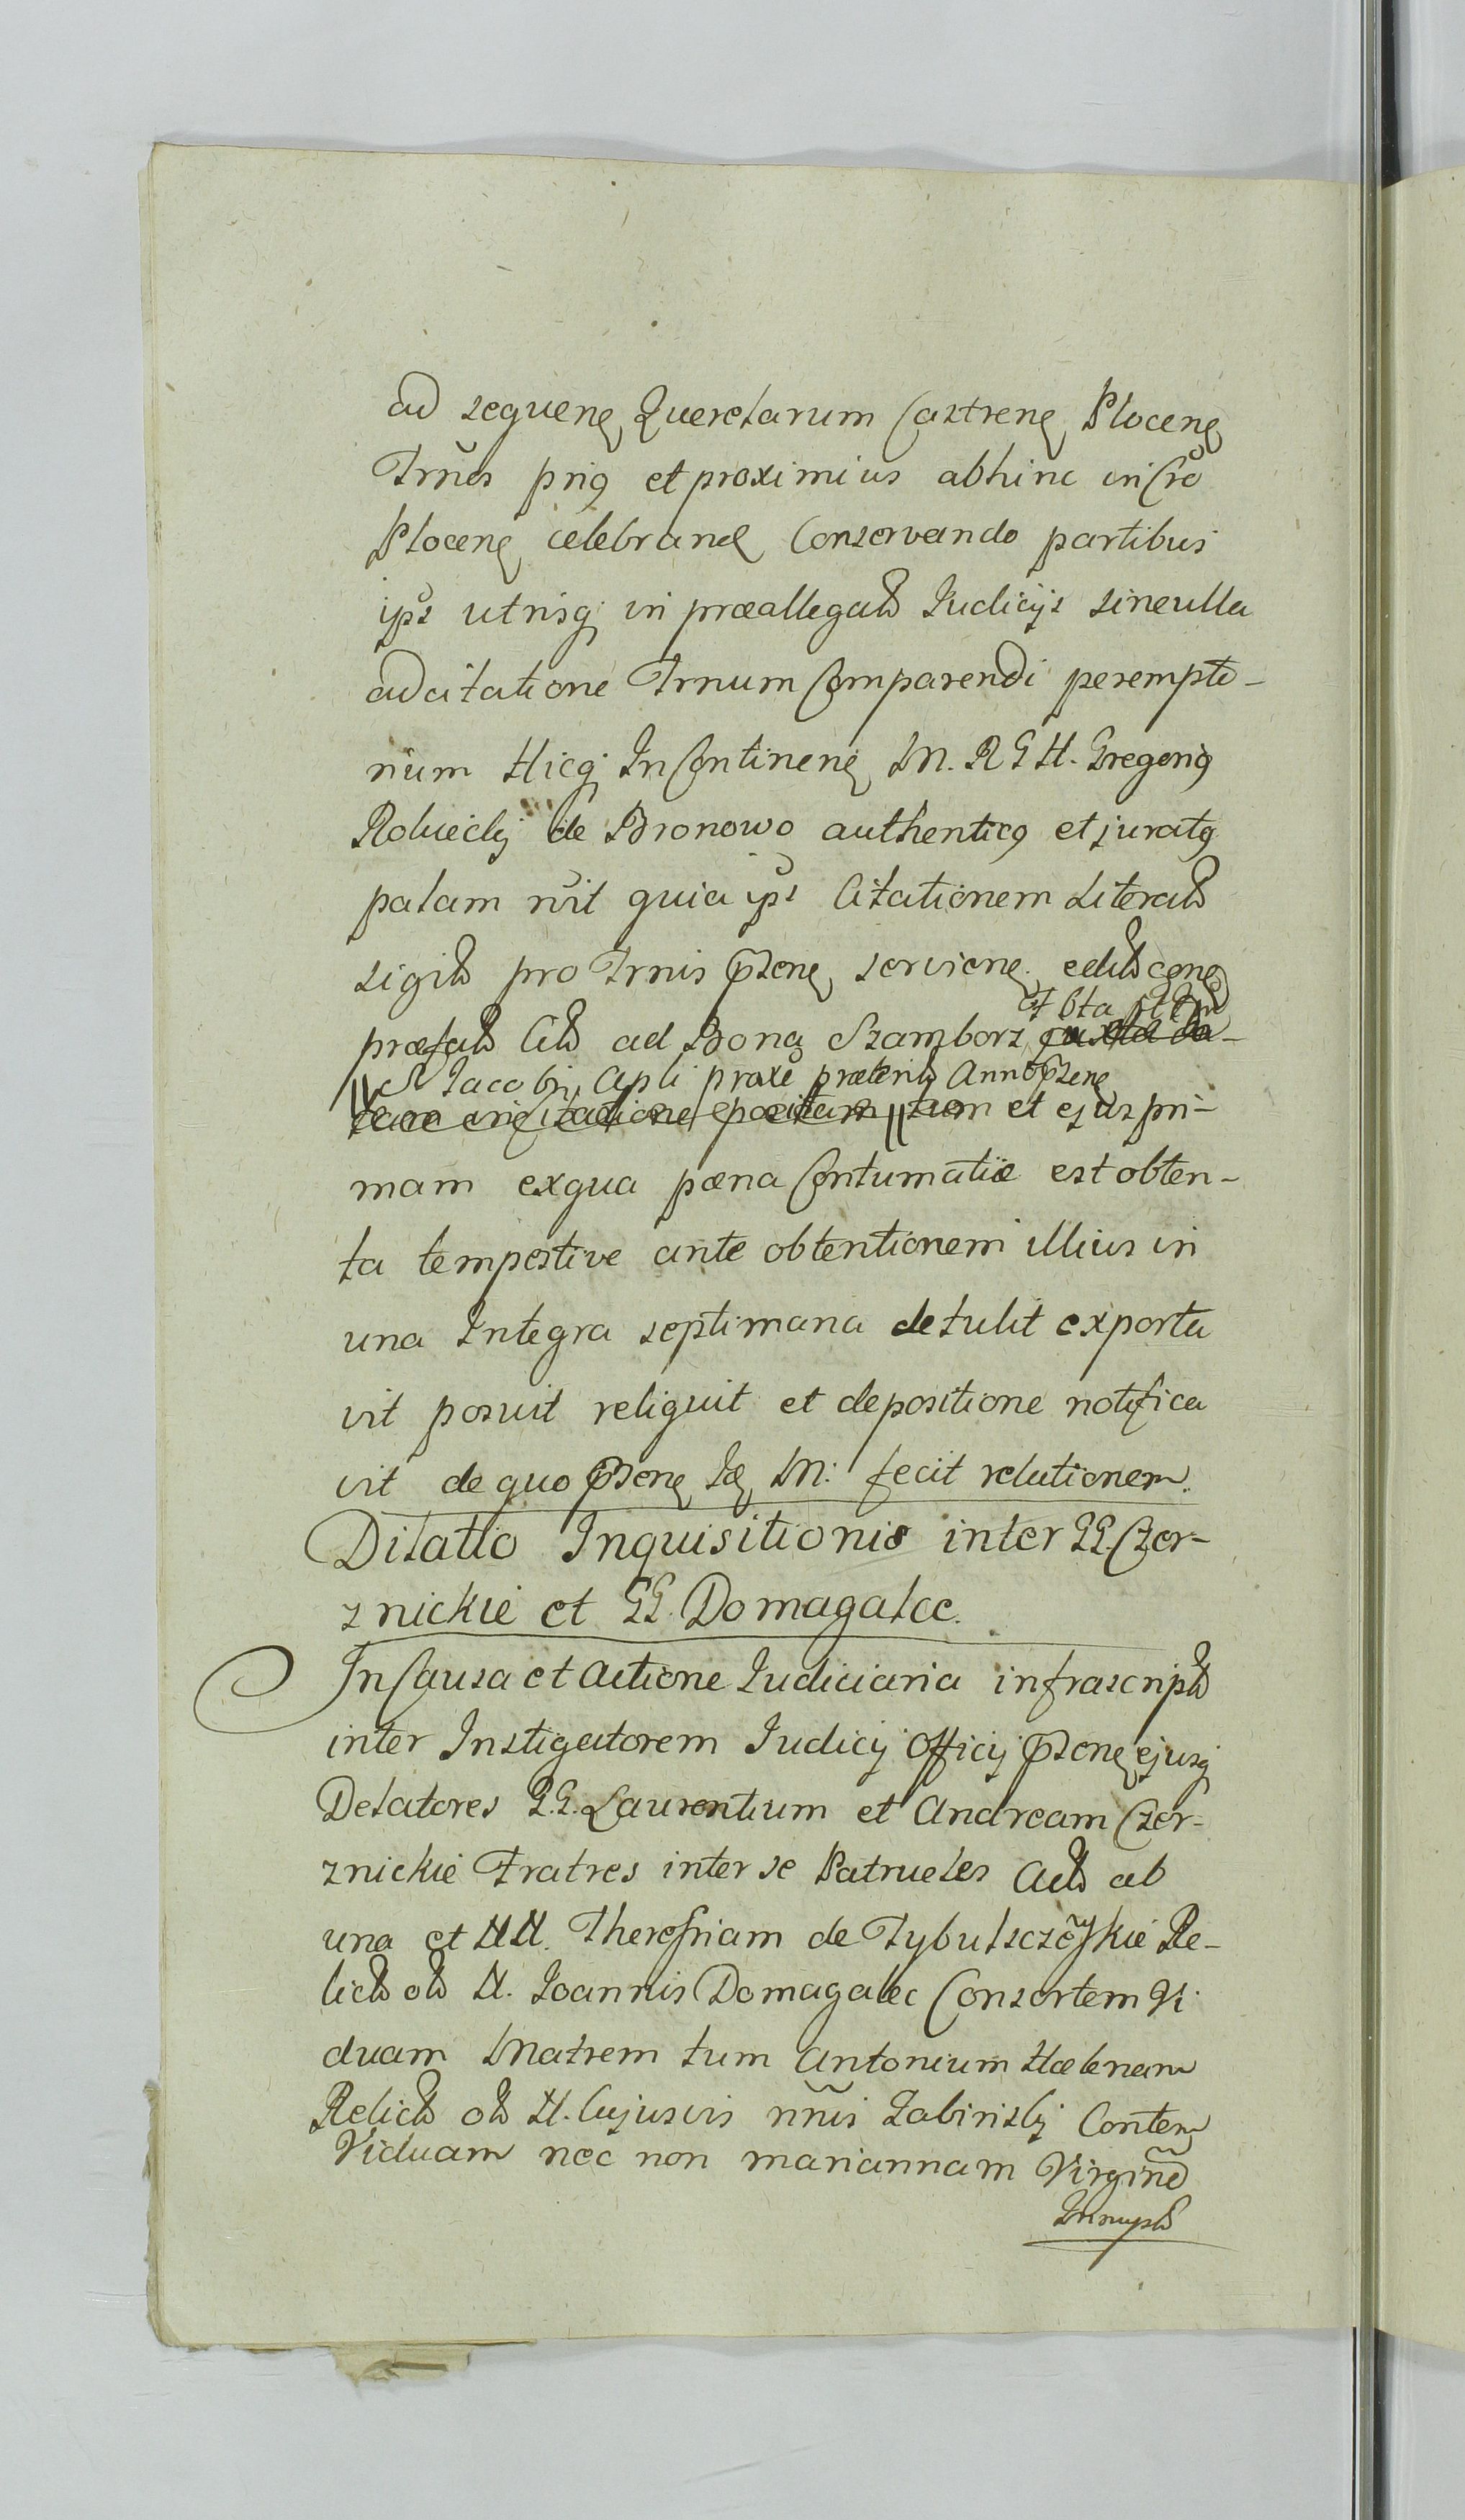 ad sequenę Querelarum Castrenę Plocenę
Trnos priq et proximius abhinc in Cro
Plocenę celebranđ Conservando partibus
ips utrisq; in præallegatd Iudicijs sine ulla
adcitatione Trnum Comparendi perempto-
rium Hicq; In Continenę M. R G H. Gregoriq
Roluieckj de Bronowo authenticq et juratq
palam rvit quia ips Citationem Literatd
sigild pro Trnis psenę servienę editd cenę
præfatd Citd ad Bona Szamborz
S Jacobi, Apli proxe præteritd Anno psenę
tum et ejus pri-
mam ex qua pœna Contumatiæ est obten-
ta tempestive ante obtentionem illius in
una Integra septimana detulit exporta
vit posuit reliquit et depositione notifica
vit de quo psenę Id M: fecit relationem.
Dilatio Inquisitionis inter GG. Czer-
znickie et GG. Domagalec.
In Causa et Actione Iudiciaria infrascriptd
inter Instigatorem Iudicij Officij psenę ejusq
Delatores G.G. Laurentium et Andream Czer-
znickie Fratres inter se Patrueles Actd ab
una et NN. Theressiam de Tybulsczeyskie Re-
lictd old N. Joannis Domagalec Consortem Vi
duam Matrem tum Antonium Hælenam
Relictd old N. Cujusvis nnis Zabinskj Contem
Viduam nec non mariannam Virgine